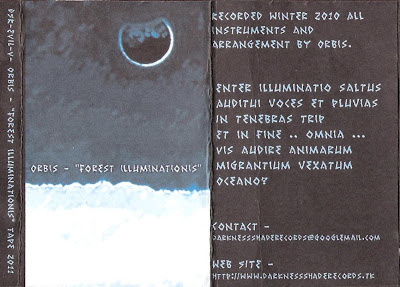 DSR-EVIL-V- ORBIS - "FOREST ILLUMINATIONIS" TAPE 2011
ORBIS - "FOREST ILLUMINATIONIS"
RECORDED WINTER 2010 ALL
INSTRUMENTS AND
ARRANGEMENT BY ORBIS.
ENTER ILLUMINATIO SALTUS
AUDITUI VOCES ET PLUVIAS
IN TENEBRAS TRIP
ET IN FINE .. OMNIA ...
VIS AUDIRE ANIMARUM
MIGRANTIUM VEXATUM
OCEANO?
CONTACT -
DARKNESSSHADERECORDS@GOOGLEMAIL.COM
WEB SITE -
HTTP://WWW.DARKNESSSHADERECORDS.TK